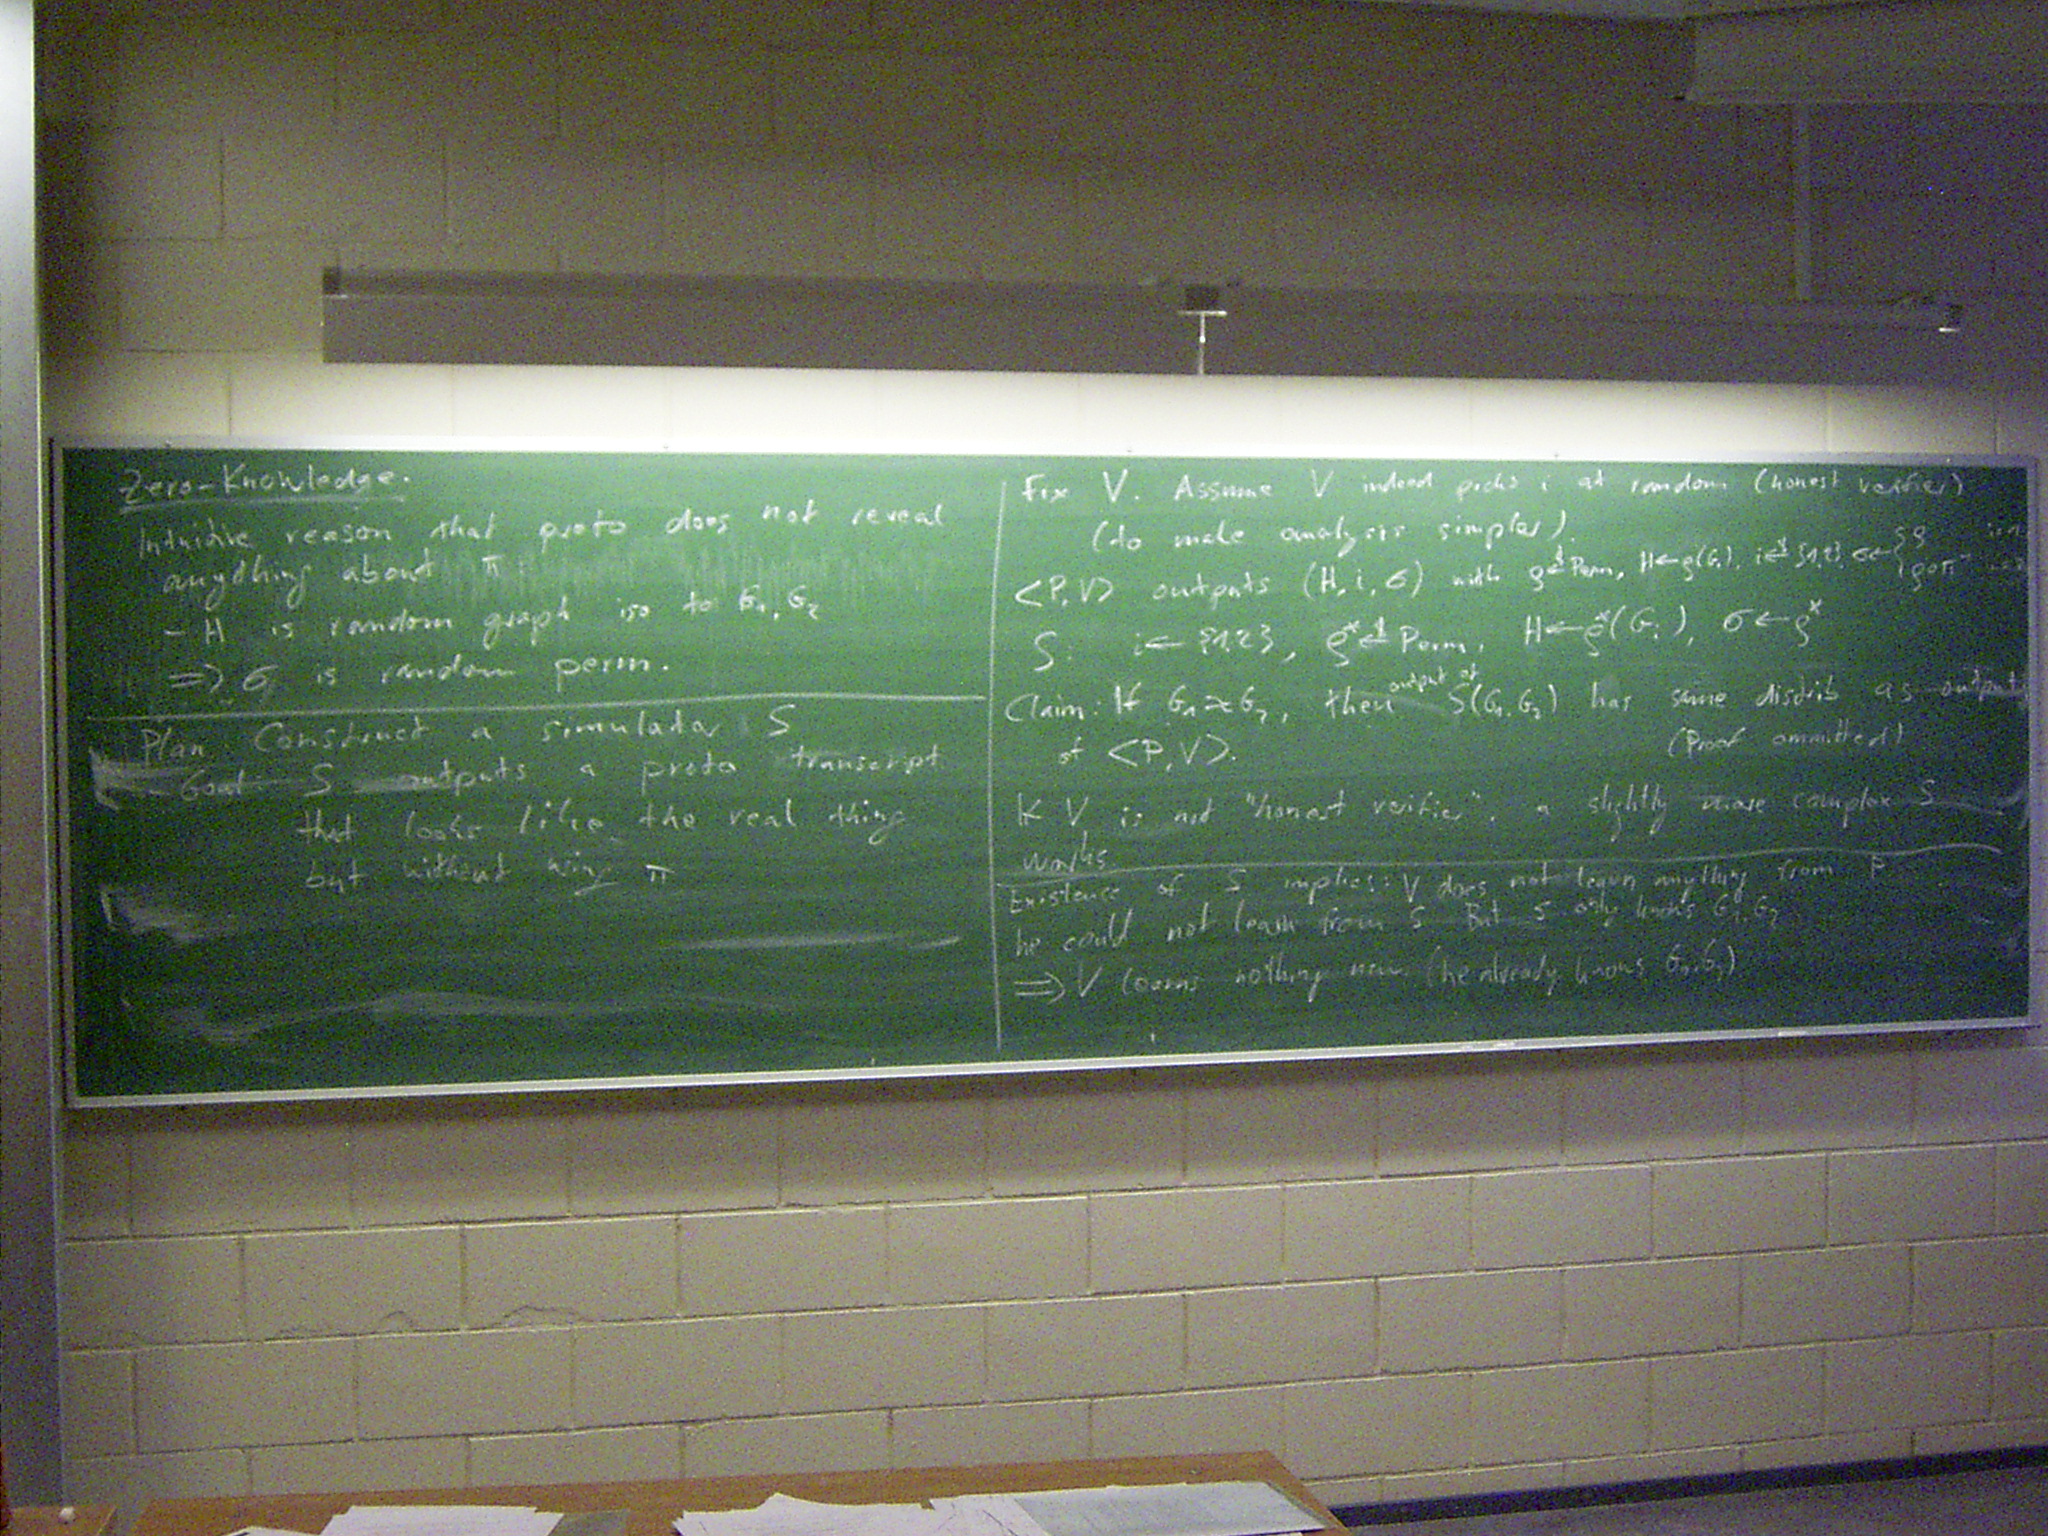 Zero-Knowledge.
Intuitive reason that proto does not reveal
anything about π.
- H is random graph iso to G₁, G₂
=> σ is random perm.
Plan: Construct a simulator S
Goal S outputs a proto transcript
that looks like the real thing
but without using π
Fix V. Assume V indeed picks i at random (honest verifier)
(to make analysis simpler).
<P,V> outputs (H, i, σ) with ρ ←$ Perm, H←ρ(G₁), i ←$ {1,2}, σ← { ρ
ρ∘π
S: i← {1,2}, ρ* ←$ Perm, H←ρ*(Gᵢ), σ←ρ*
Claim: If G₁≈G₂, then output of S(G₁, G₂) has same distrib as output
of <P,V>. (Proof ommitted)
If V is not "honest verifier", a slightly more complex S
works.
Existence of S implies: V does not learn anything from P
he could not learn from S But S only knows G₁, G₂
=> V learns nothing new (he already knows G₁, G₂)